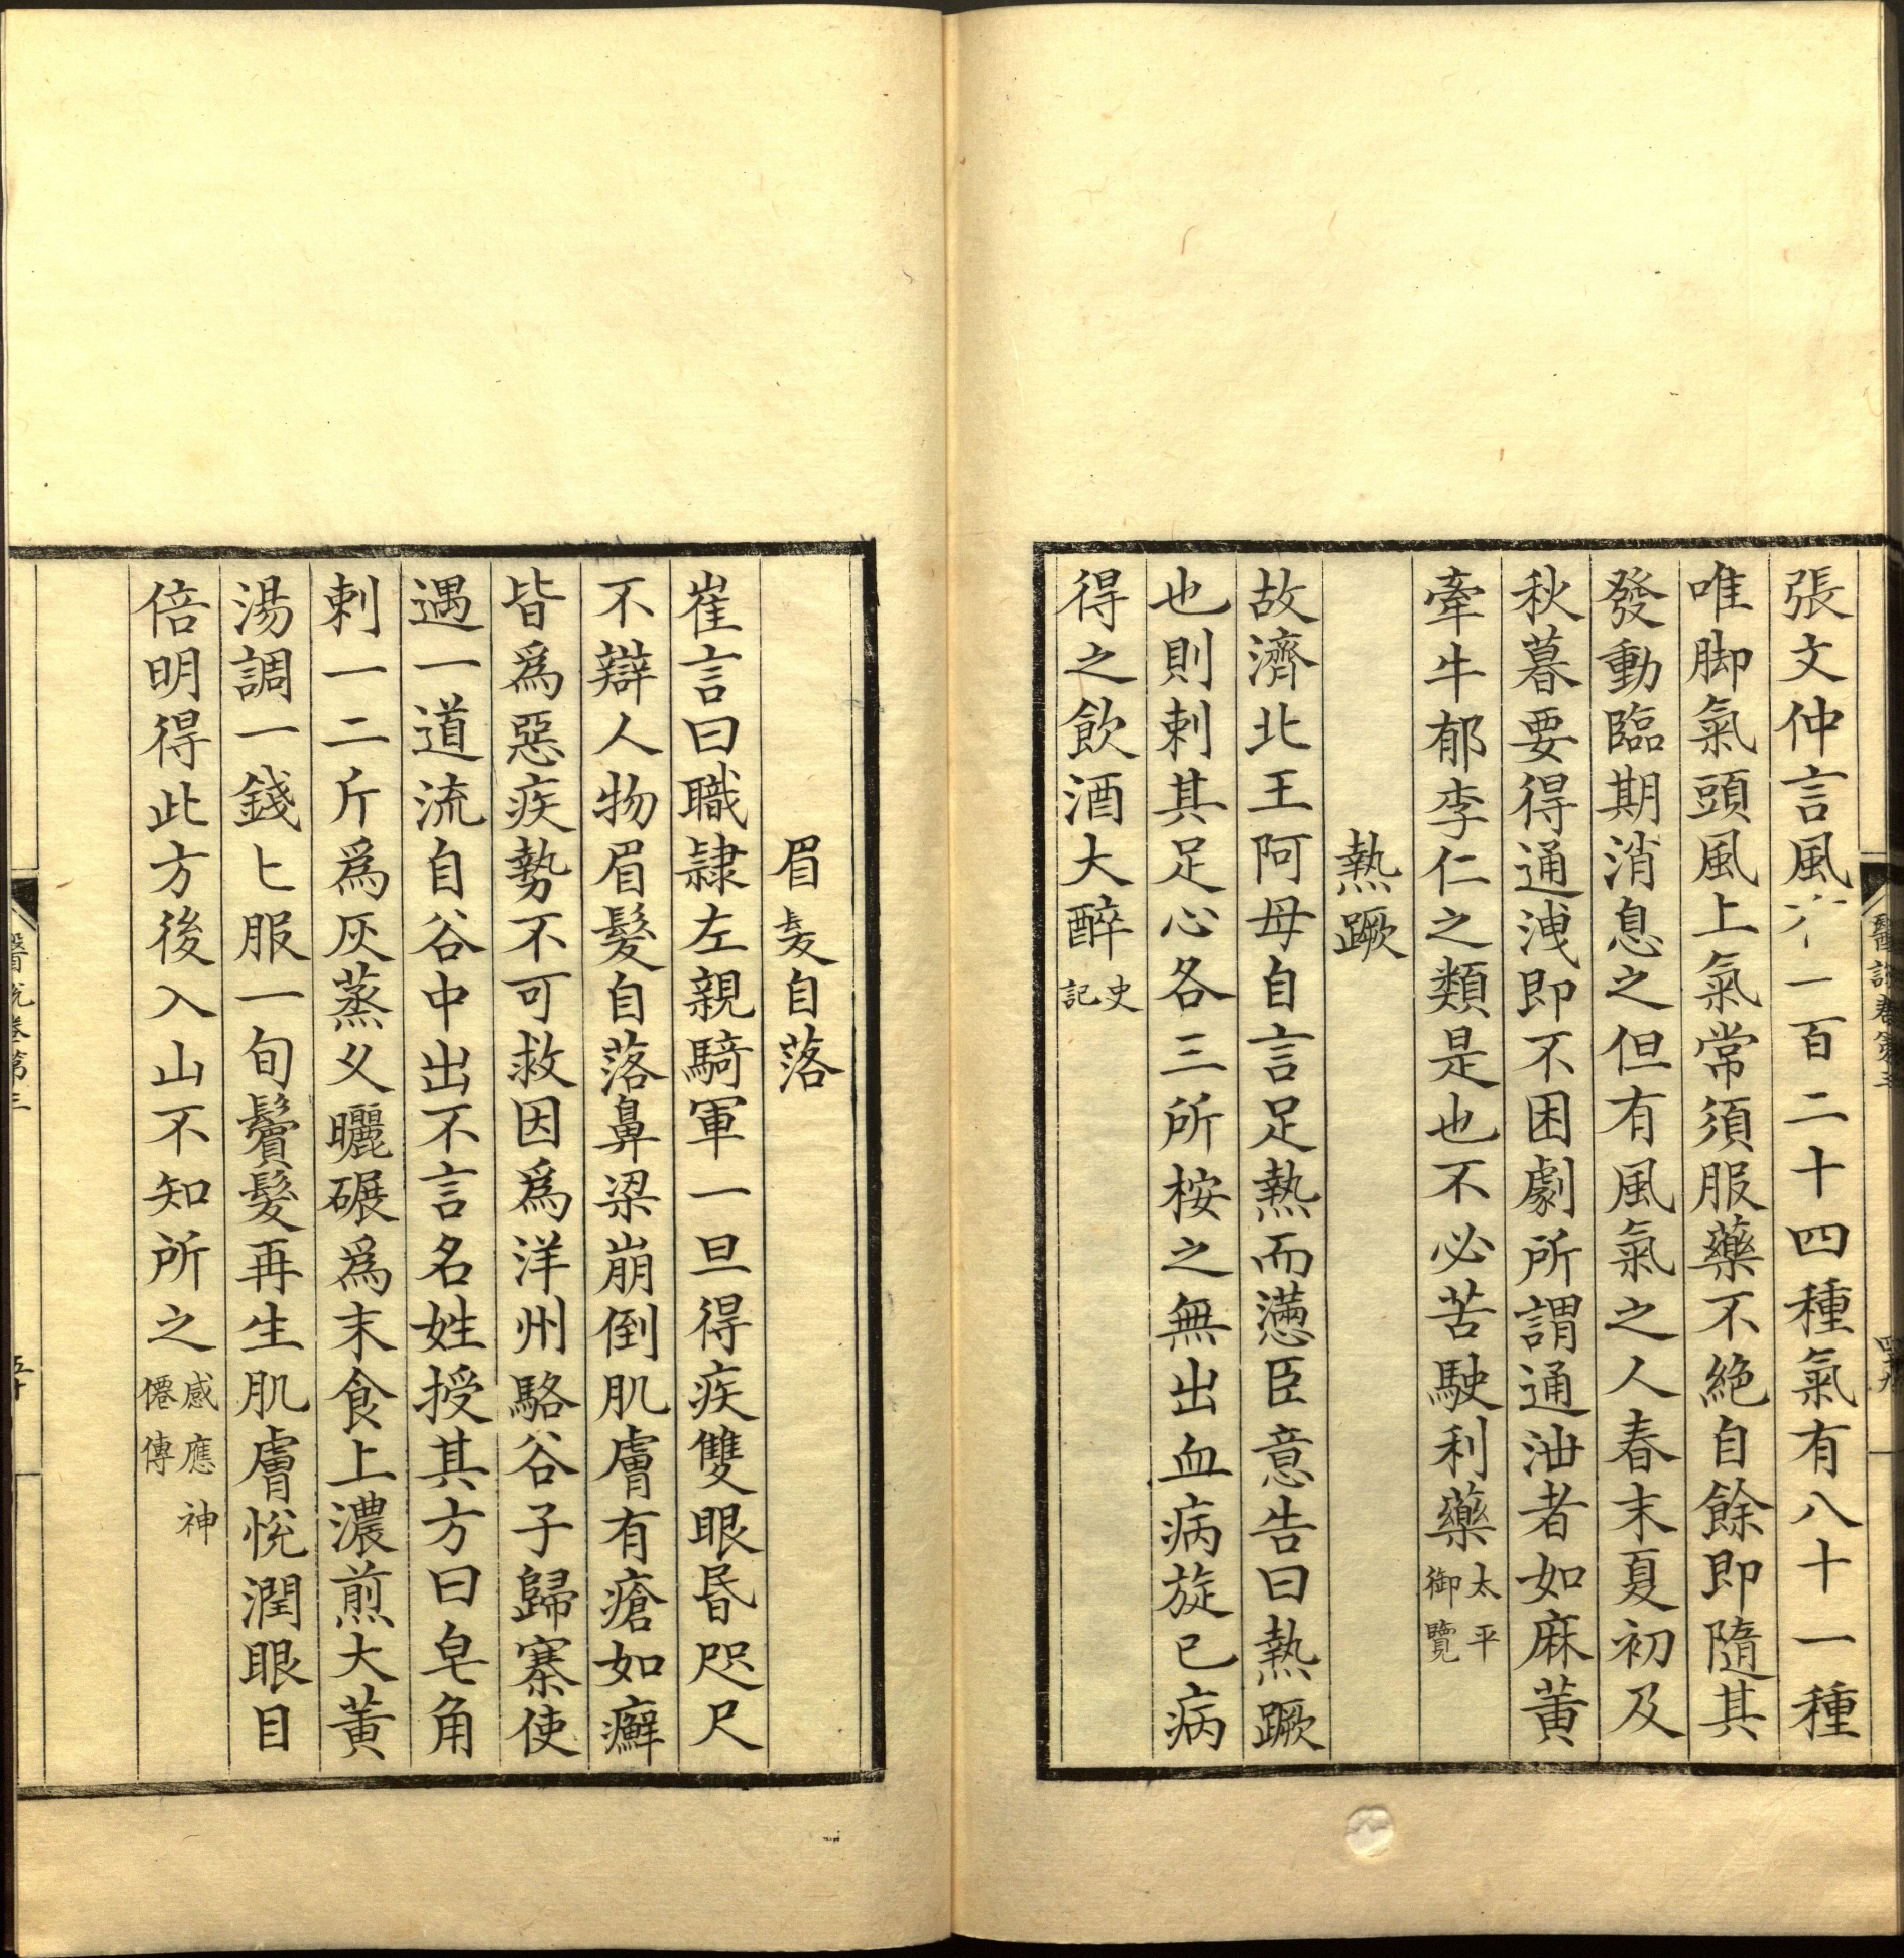 張文仲言風一百二十四種氣有八十一種
唯脚氣頭風上氣常須服藥不絶自餘即隨其
發動臨期消息之但有風氣之人春末夏初及
秋暮要得通洩即不困劇所謂通洩者如麻黄
牽牛郁李仁之類是也不必苦駛利藥太平御覽
熱蹶
故濟北王阿母自言足熱而懣臣意告曰熱蹶
也則刺其足心各三所桉之無出血病旋已病
得之飲酒大醉史記
眉髮自落
崔言曰職隷左親騎軍一旦得疾雙眼昏咫尺
不辯人物眉髮自落鼻梁崩倒肌膚有瘡如癬
皆爲惡疾勢不可救因爲洋州駱谷子歸寨使
遇一道流自谷中出不言名姓授其方曰皂角
刺一二斤爲灰蒸乆曬碾爲末食上濃煎大黄
湯調一錢匕服一旬鬢髮再生肌膚悅潤眼目
倍明得此方後入山不知所之感應神僊傳